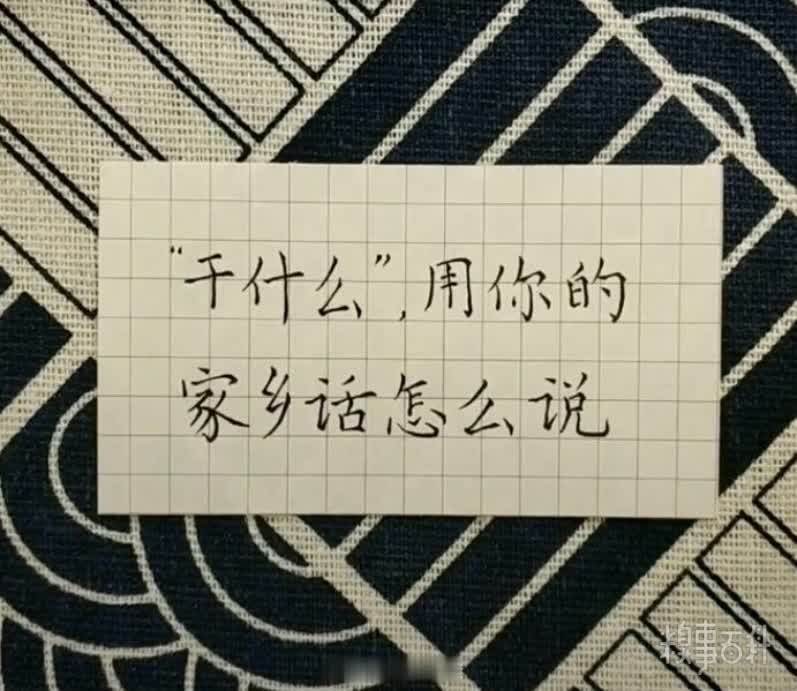 “干什么”,用你的
家乡话怎么说
糗事百科